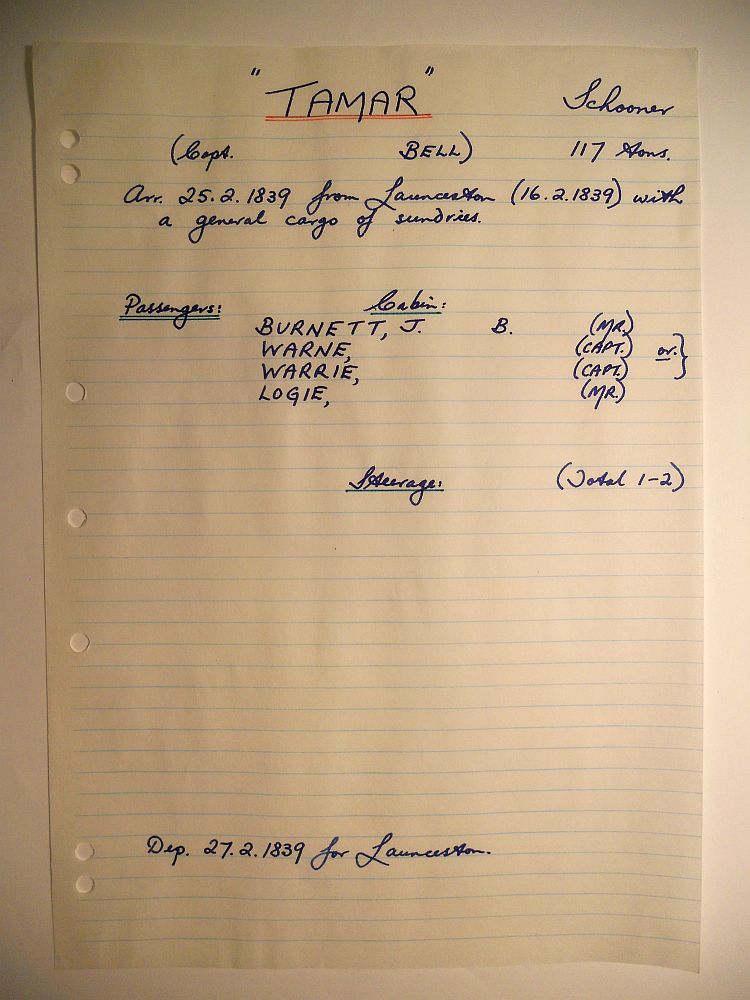 "TAMAR" Schooner
(Capt. BELL) 117 tons.
Arr. 25.2.1839 from Launceston (16.2.1839) with
a general cargo of sundries.
Passengers: Cabin:
BURNETT, J. B. (MR.)
WARNE, (CAPT.) or }
WARRIE, (CAPT.)
LOGIE, (MR.)
Steerage: (Total 1-2)
Dep. 27.2.1839 for Launceston.